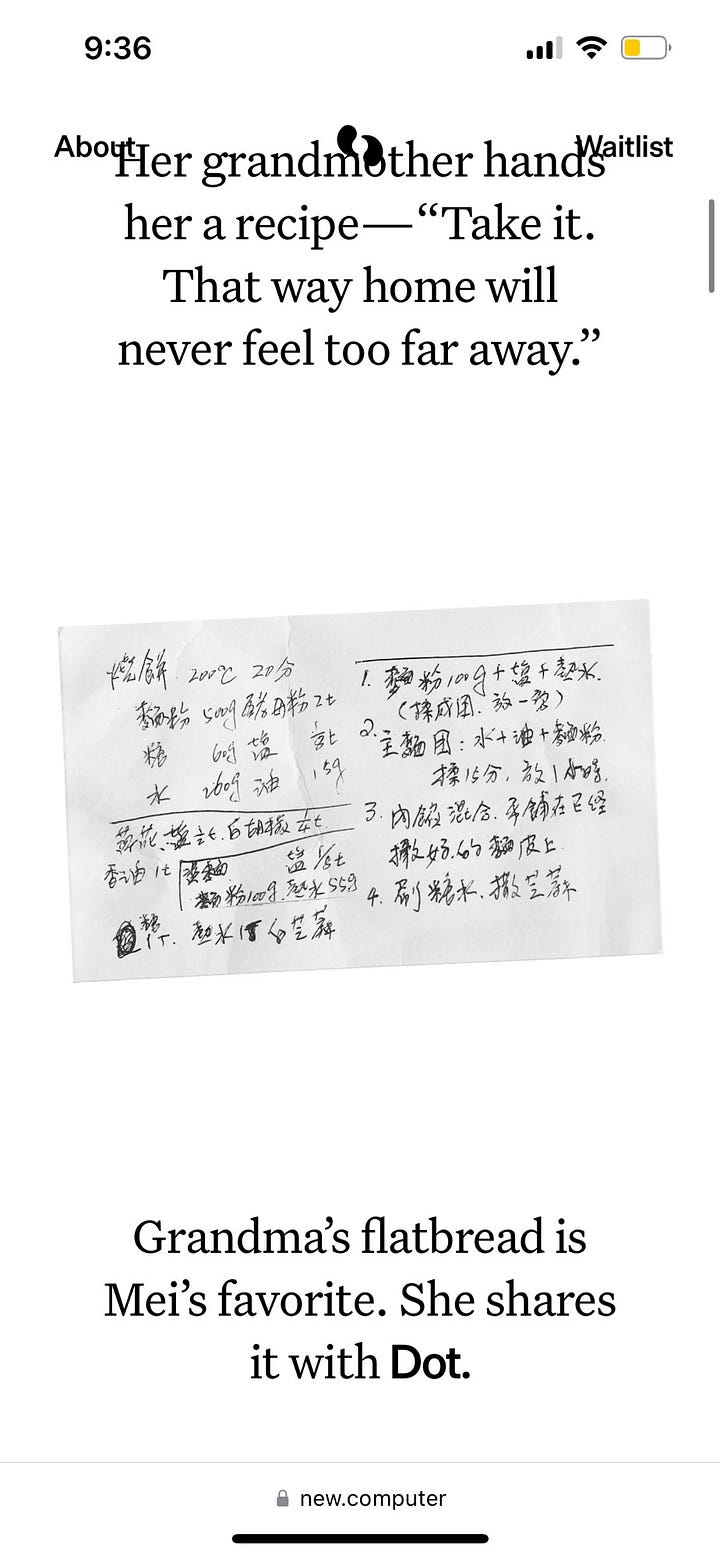 9:36
About
Waitlist
Her grandmother hands
her a recipe—“Take it.
That way home will
never feel too far away.”
燒餅 200℃ 20分
麵粉 500g 酵母粉 2t
糖 60g 塩 t
水 260g 油 15g
塩 t. 白胡椒 t
香油 1t 燙麵 塩 1/8t
麵粉100g. 热水 55g
糖 1T. 热水 1T 白芝蔴
1. 麵粉100g+塩+热水.
(揉成团. 放一旁)
2. 主麵团: 水+油+麵粉.
揉15分. 放1小時.
3. 內餡混合. 平鋪在已经
好的麵皮上.
4. 刷糖水. 撒芝蔴
Grandma’s flatbread is
Mei’s favorite. She shares
it with Dot.
new.computer